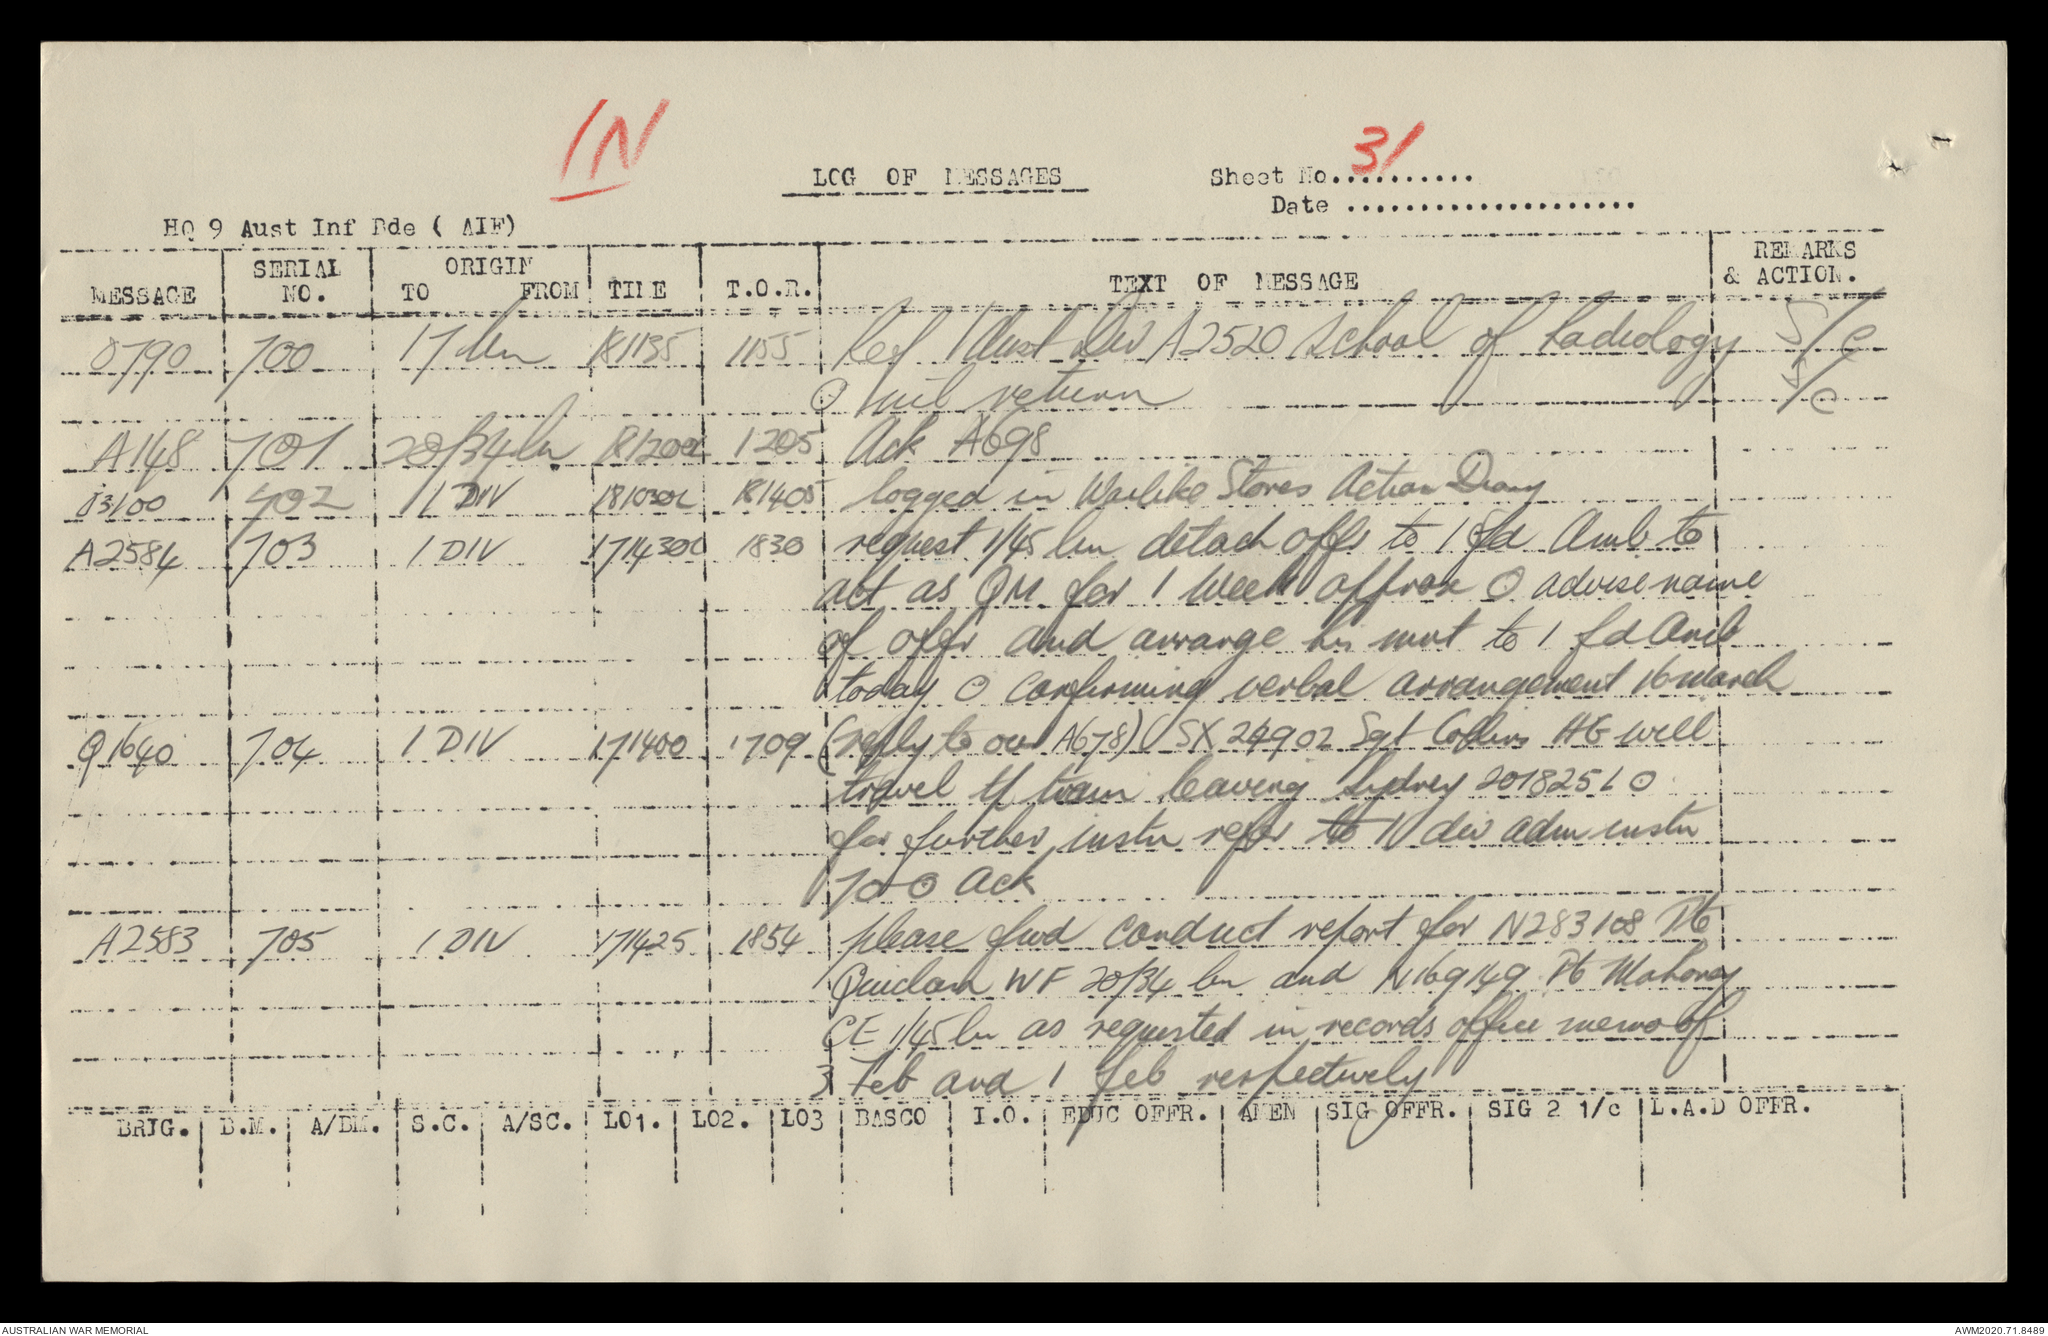 IN
LOG OF MESSAGES
Sheet No...31........
Date ....................
HQ 9 Aust Inf Bde ( AIF)
MESSAGE SERIAL NO. ORIGIN TO FROM TIME T.O.R. TEXT OF MESSAGE REMARKS & ACTION.
0790 700 17 bn 181135 1155 Ref 1 Aust Div A2520 School of Radiology S/C
⊙ nil return S/C
A148 701 20/34 bn 181200L 1205 Ack A698
03100 702 1 DIV 181030L 181405 logged in Warlike Stores Action Diary
A2584 703 1 DIV 171430L 1830 request 1/45 bn detach offr to 1 fd Amb to
act as QM for 1 week approx ⊙ advise name
of offr and arrange his mvt to 1 fd Amb
today ⊙ confirming verbal arrangement 16 march
Q1640 704 1 DIV 171400 1709 (reply to our A678) SX 24902 Sgt Collins HG will
travel tf train leaving Sydney 201825L ⊙
for further instn refer to 1 div adm instn
70 ⊙ Ack
A2583 705 1 DIV 171425 1854 please fwd conduct report for N283108 Pte
WF 20/34 bn and N169149 Pte Mahoney
CE 1/45 bn as requested in records office memo of
3 Feb and 1 feb respectively
BRIG. B.M. A/BM. S.C. A/SC. LO1. LO2. LO3 BASCO I.O. EDUC OFFR. AMEN SIG OFFR. SIG 2 1/c L.A.D OFFR.
AUSTRALIAN WAR MEMORIAL
AWM2020.71.8489